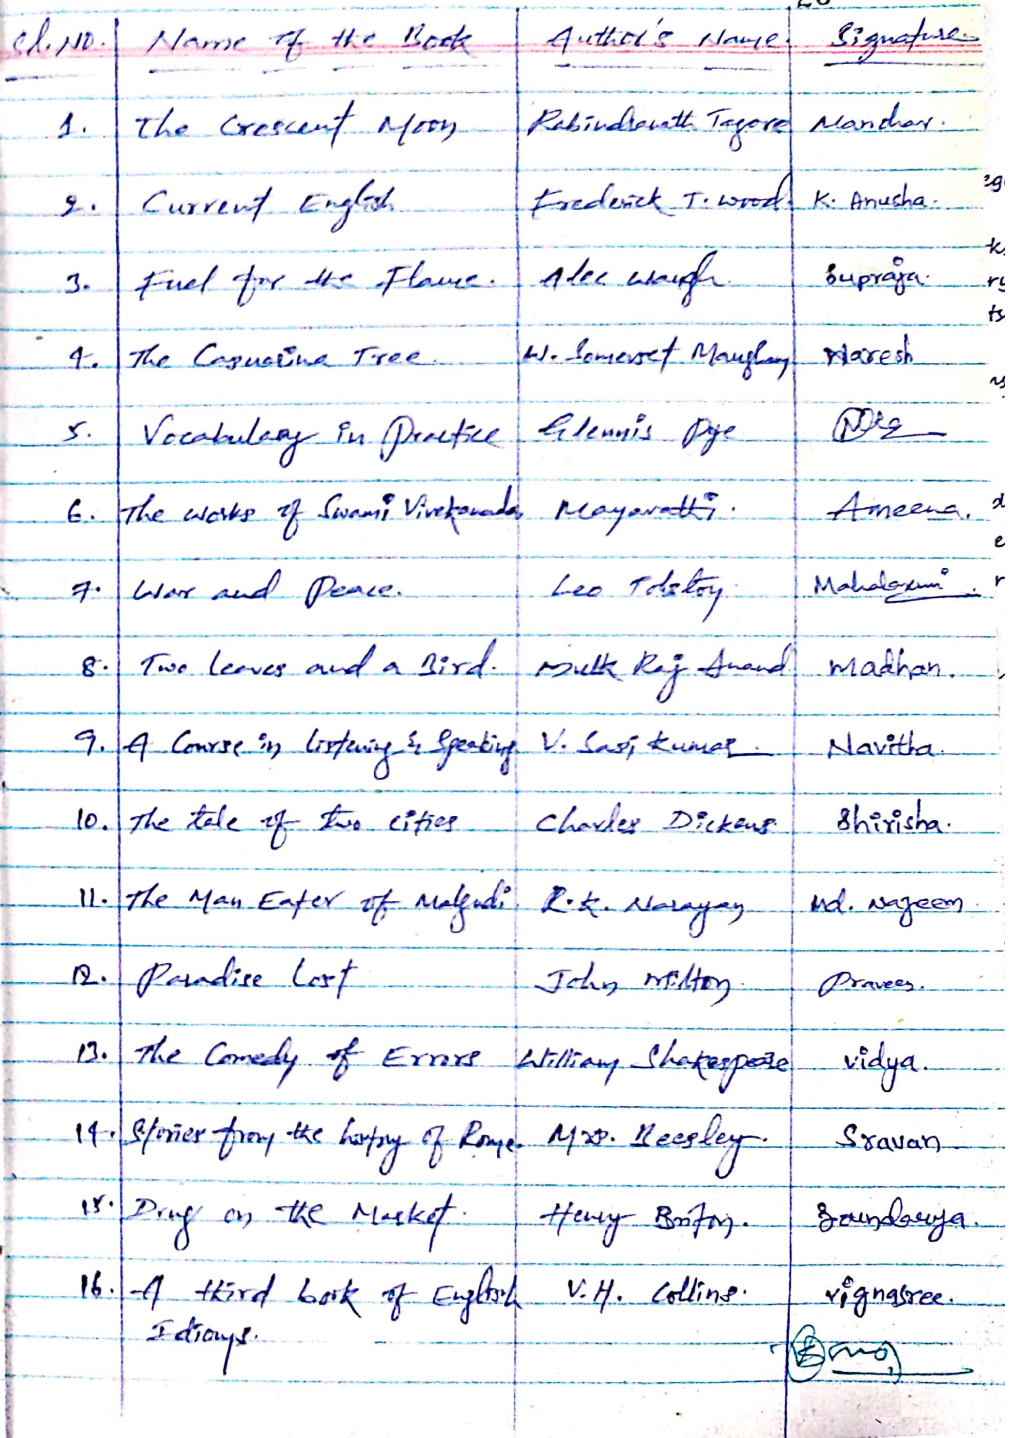 Sl.No. Name of the Book Author's Name. Signature
1. The Crescent Moon Rabindranath Tagore Manohar.
2. Current English Frederick T. Wood. K. Anusha.
3. Fuel for the Flame. Alec Waugh. Supraja.
4. The Casuarina Tree. W. Somerset Maugham Naresh
5. Vocabulary in Practice Glennis Pye
6. The works of Swami Vivekanada Mayavathi. Ameena.
7. War and Peace. Leo Tolstoy. Mahalaxmi
8. Two leaves and a Bird. Mulk Raj Anand Madhan.
9. A Course in listening & Speaking V. Sasi Kumar Navitha.
10. The tale of two cities Charles Dickens Shirisha.
11. The Man Eater of Malgudi. R.K. Narayan Md. Nazeem
12. Paradise Lost John Milton. Praveen.
13. The Comedy of Errors William Shakespeare vidya.
14. Stories from the history of Rome Mrs. Beesley. Sravan
15. Drug on the Market. Henry Briton. Soundarya.
16. A third book of English V.H. Collins. vignasree.
Idioms.